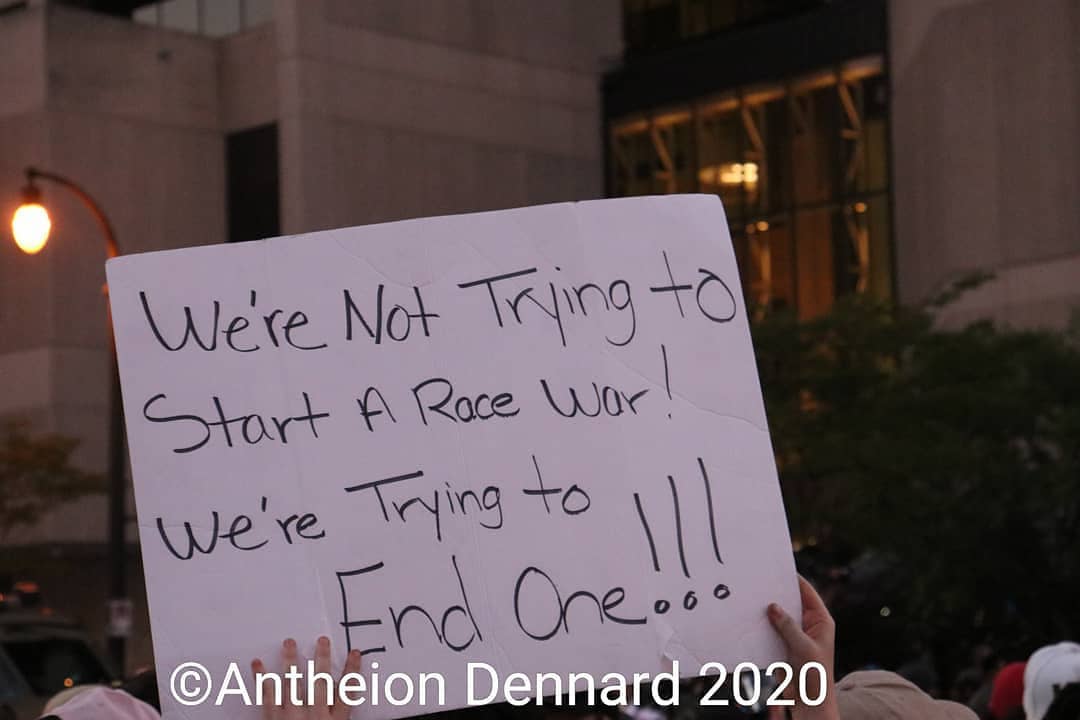 We're Not Trying to
Start A Race War!
We're Trying to
End One!!!
©Antheion Dennard 2020